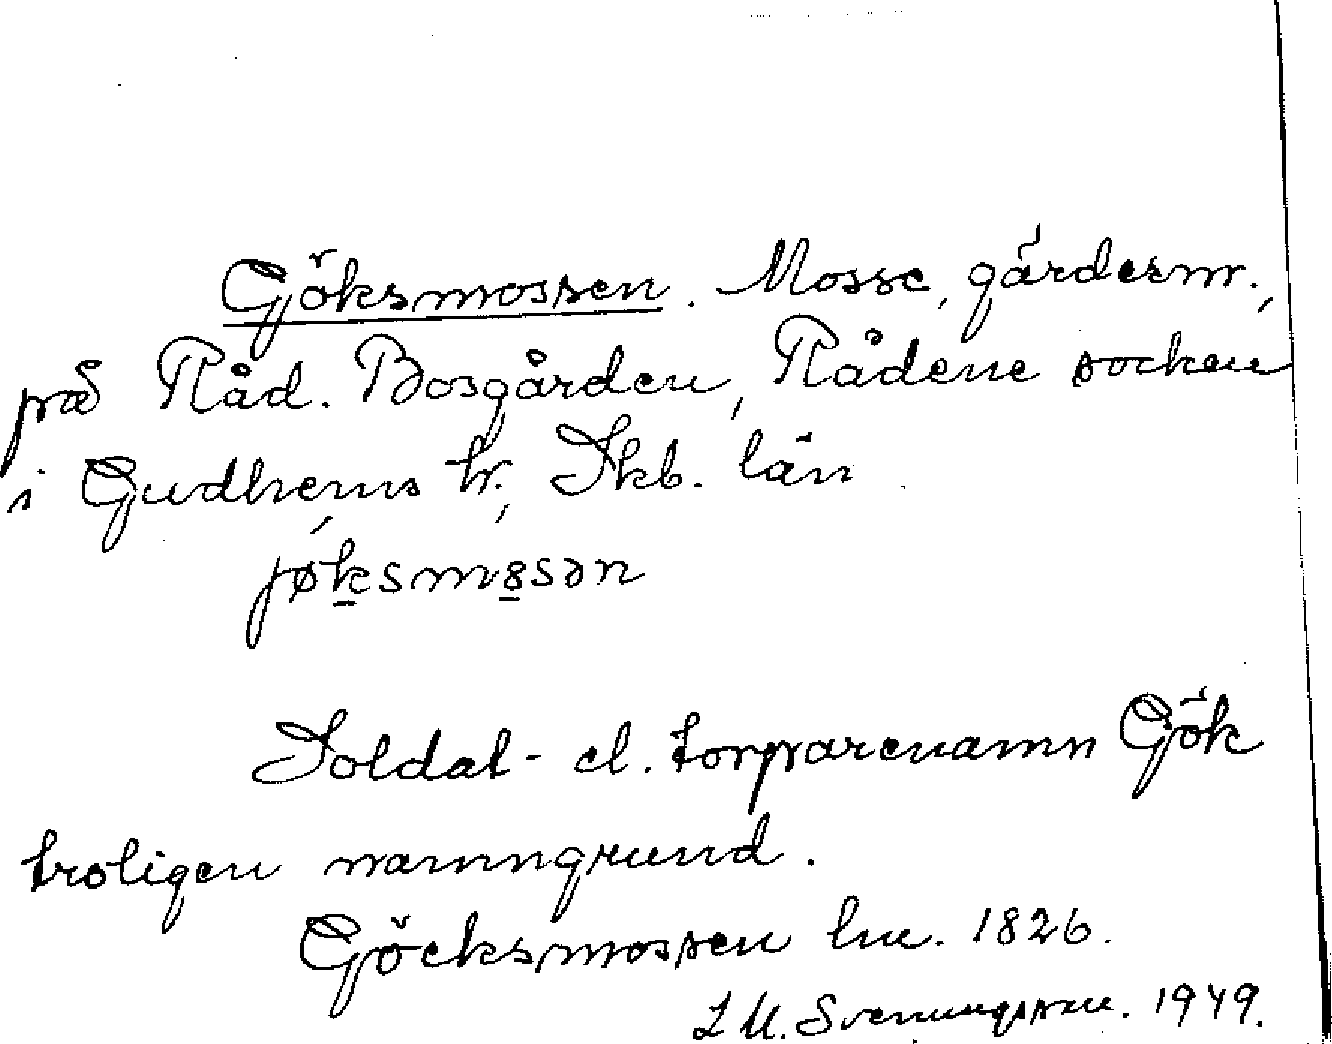 Göksmossen. Mosse, gärdesnr.,
på Råd. Bosgården, Rådene socken
i Gudhems hr., Skb. län
jøksmȣsən
Soldat- el. torparenamn Gök
troligen namngrund.
Göcksmossen hu. 1826.
L M. Svenungsson. 1949.